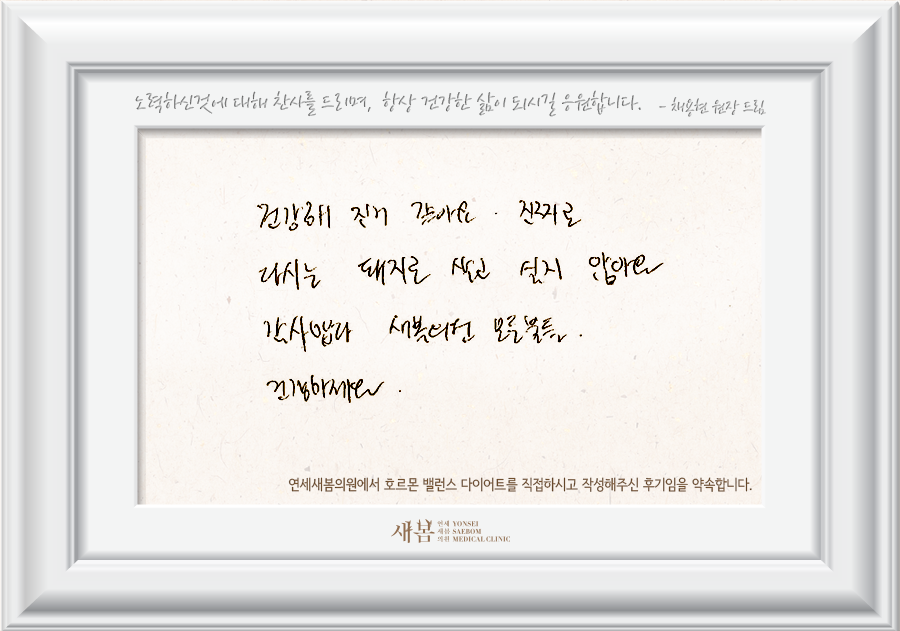 노력하신것에 대해 찬사를 드리며, 항상 건강한 삶이 되시길 응원합니다. - 채용현 원장 드림
건강해 진거 같아요. 진짜로
다시는 돼지로 살고 싶지 않아요
감사합니다 새봄의원 모든분들.
건강하세요.
연세새봄의원에서 호르몬 밸런스 다이어트를 직접하시고 작성해주신 후기임을 약속합니다.
새봄 연세 새봄 의원 YONSEI SAEBOM MEDICAL CLINIC